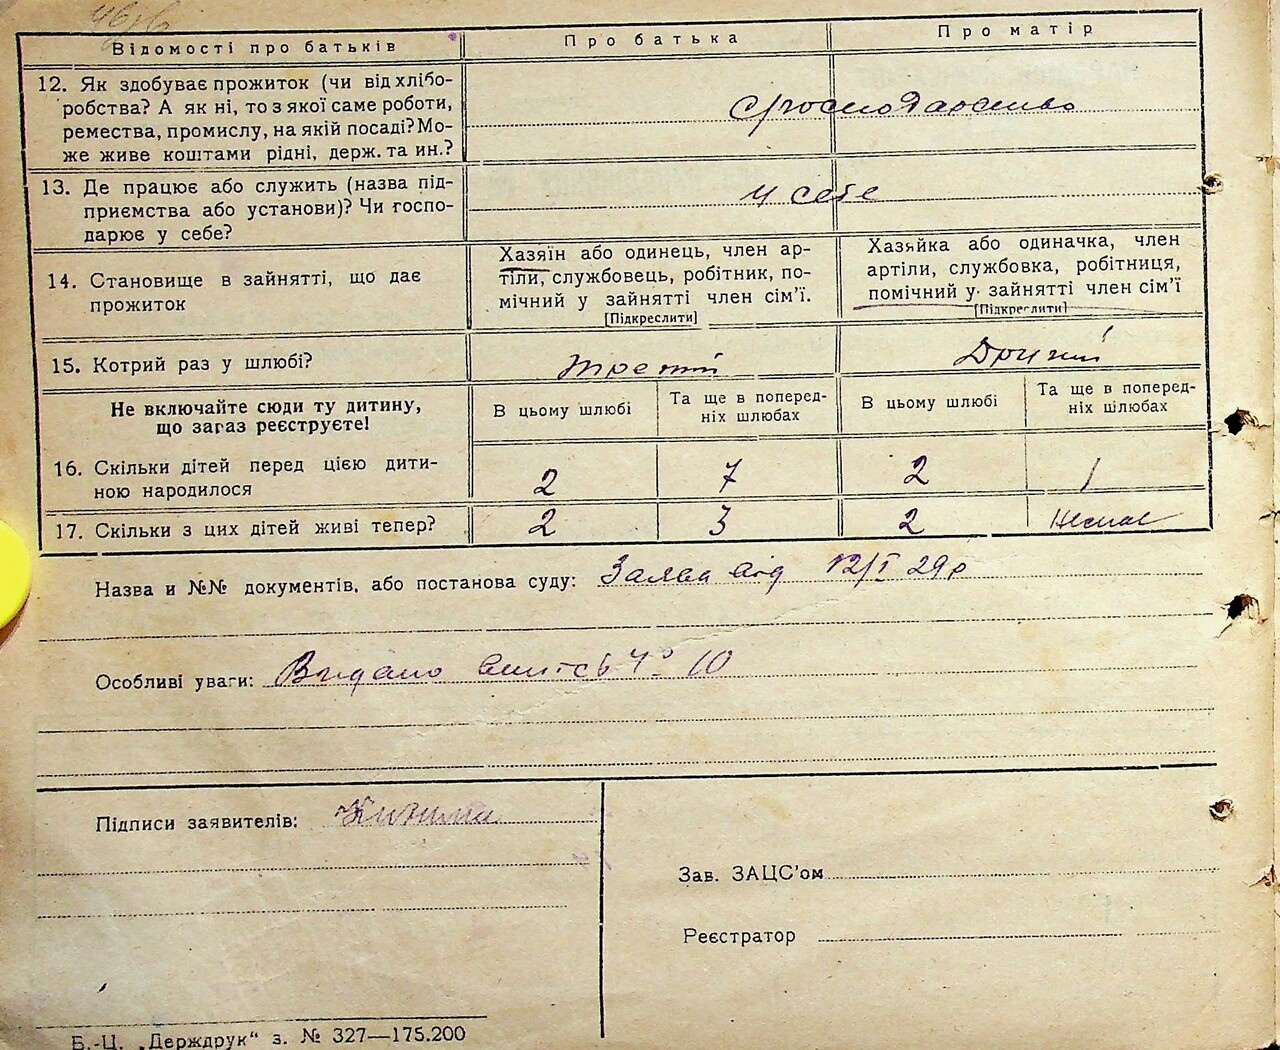 Відомості про батьків
Про батька
Про матір
12. Як здобуває прожиток (чи від хлібо-
робства? А як ні, то з якої саме роботи,
ремества, промислу, на якій посаді? Мо-
же живе коштами рідні, держ. та ин.?
господарство
13. Де працює або служить (назва під-
приємства або установи)? Чи госпо-
дарює у себе?
у себе
14. Становище в зайнятті, що дає
прожиток
Хазяїн або одинець, член ар-
тіли, службовець, робітник, по-
мічний у зайнятті член сім'ї.
[Підкреслити]
Хазяйка або одиначка, член
артіли, службовка, робітниця,
помічний у зайнятті член сім'ї
[Підкреслити]
15. Котрий раз у шлюбі?
третій
Другий
Не включайте сюди ту дитину,
що загаз реєструєте!
В цьому шлюбі
Та ще в поперед-
ніх шлюбах
В цьому шлюбі
Та ще в поперед-
ніх шлюбах
16. Скільки дітей перед цією дити-
ною народилося
2
7
2
1
17. Скільки з цих дітей живі тепер?
2
3
2
Немає
Назва и №№ документів, або постанова суду: Заява від 12/I 29р
Особливі уваги: Видано 10
Підписи заявителів:
Зав. ЗАЦС'ом
Реєстратор
Б.-Ц. „Держдрук" з. № 327—175.200